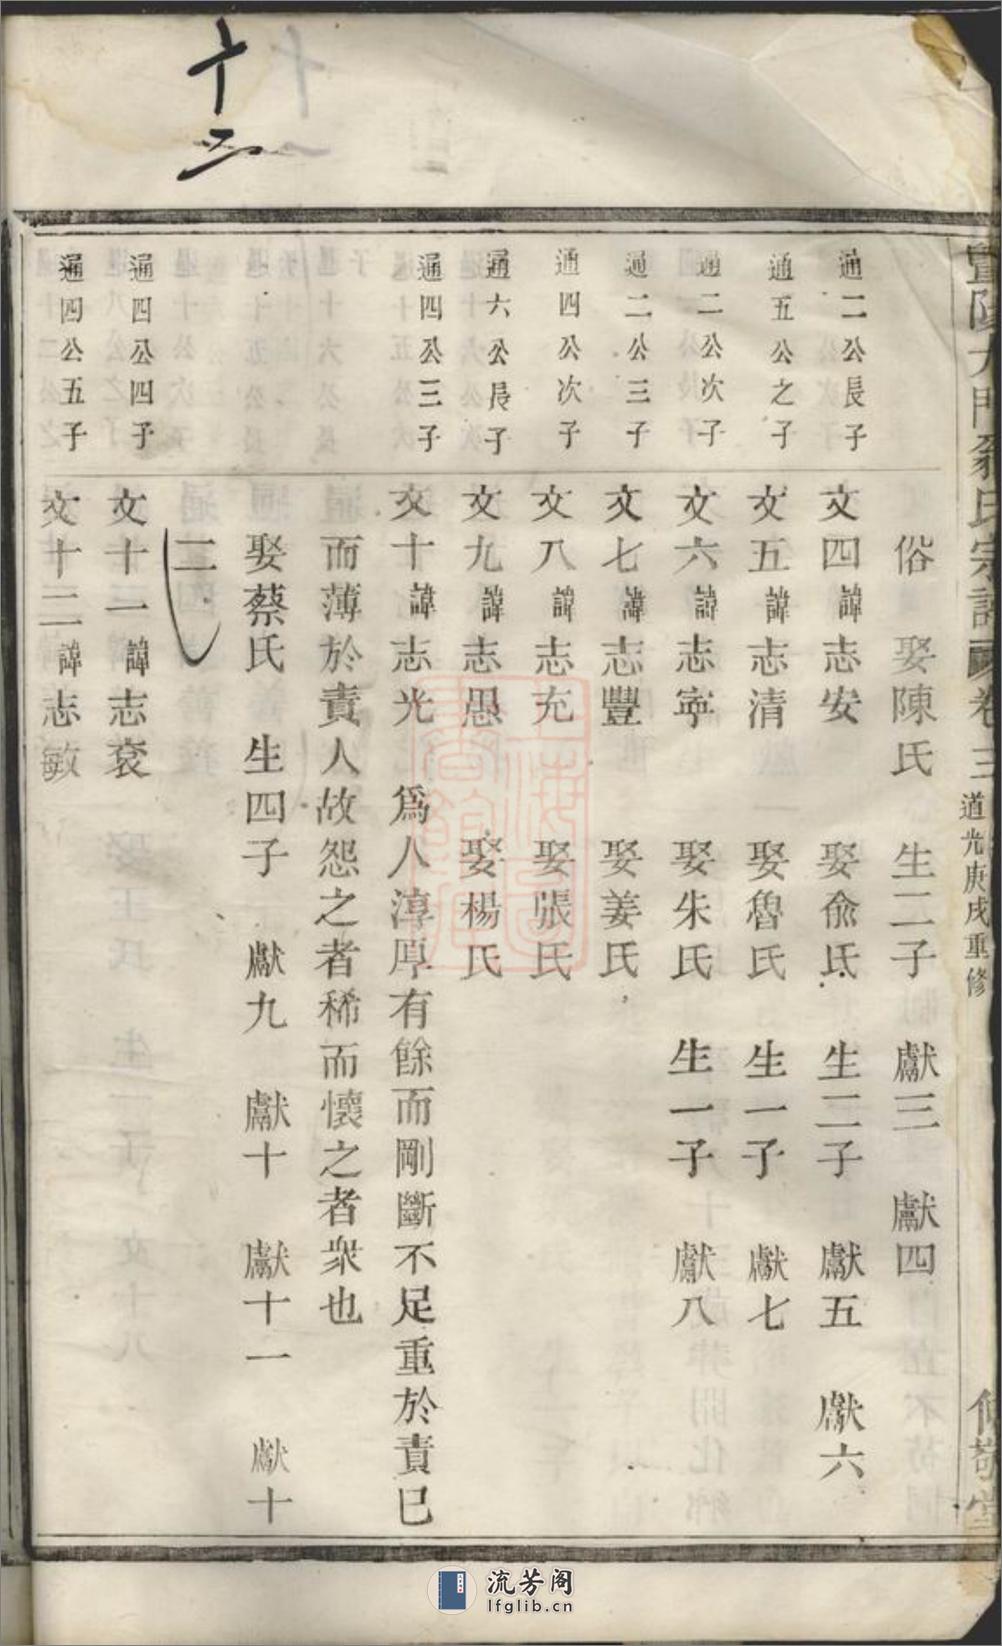 十二
暨陽大門翁氏宗譜 卷三 道光庚戌重修 修敬堂
俗 娶陳氏 生二子 獻三 獻四
通二公長子 文四諱志安 娶俞氏 生二子 獻五 獻六
通五公之子 文五諱志清 娶魯氏 生一子 獻七
通二公次子 文六諱志寧 娶朱氏 生一子 獻八
通二公三子 文七諱志豐 娶姜氏
通四公次子 文八諱志充 娶張氏
通六公長子 文九諱志愚 娶楊氏
通四公三子 文十諱志光 爲人淳厚有餘而剛斷不足重於責已
而薄於責人故怨之者稀而懷之者衆也
娶蔡氏 生四子 獻九 獻十 獻十一 獻十
二
通四公四子 文十一諱志袞
通四公五子 文十二諱志敏
流芳阁
lfglib.cn